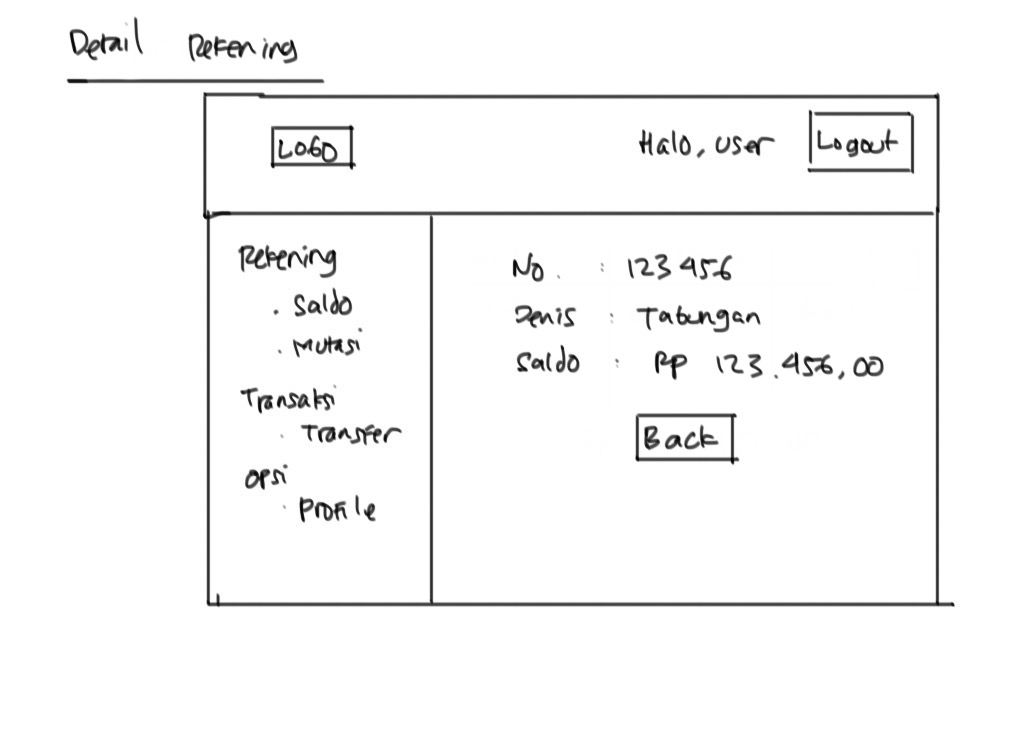 Detail Rekening
LOGO
Halo, user
Logout
Rekening
. Saldo
. Mutasi
Transaksi
. Transfer
Opsi
. Profile
No. : 123456
Jenis : Tabungan
Saldo : Rp 123.456,00
Back